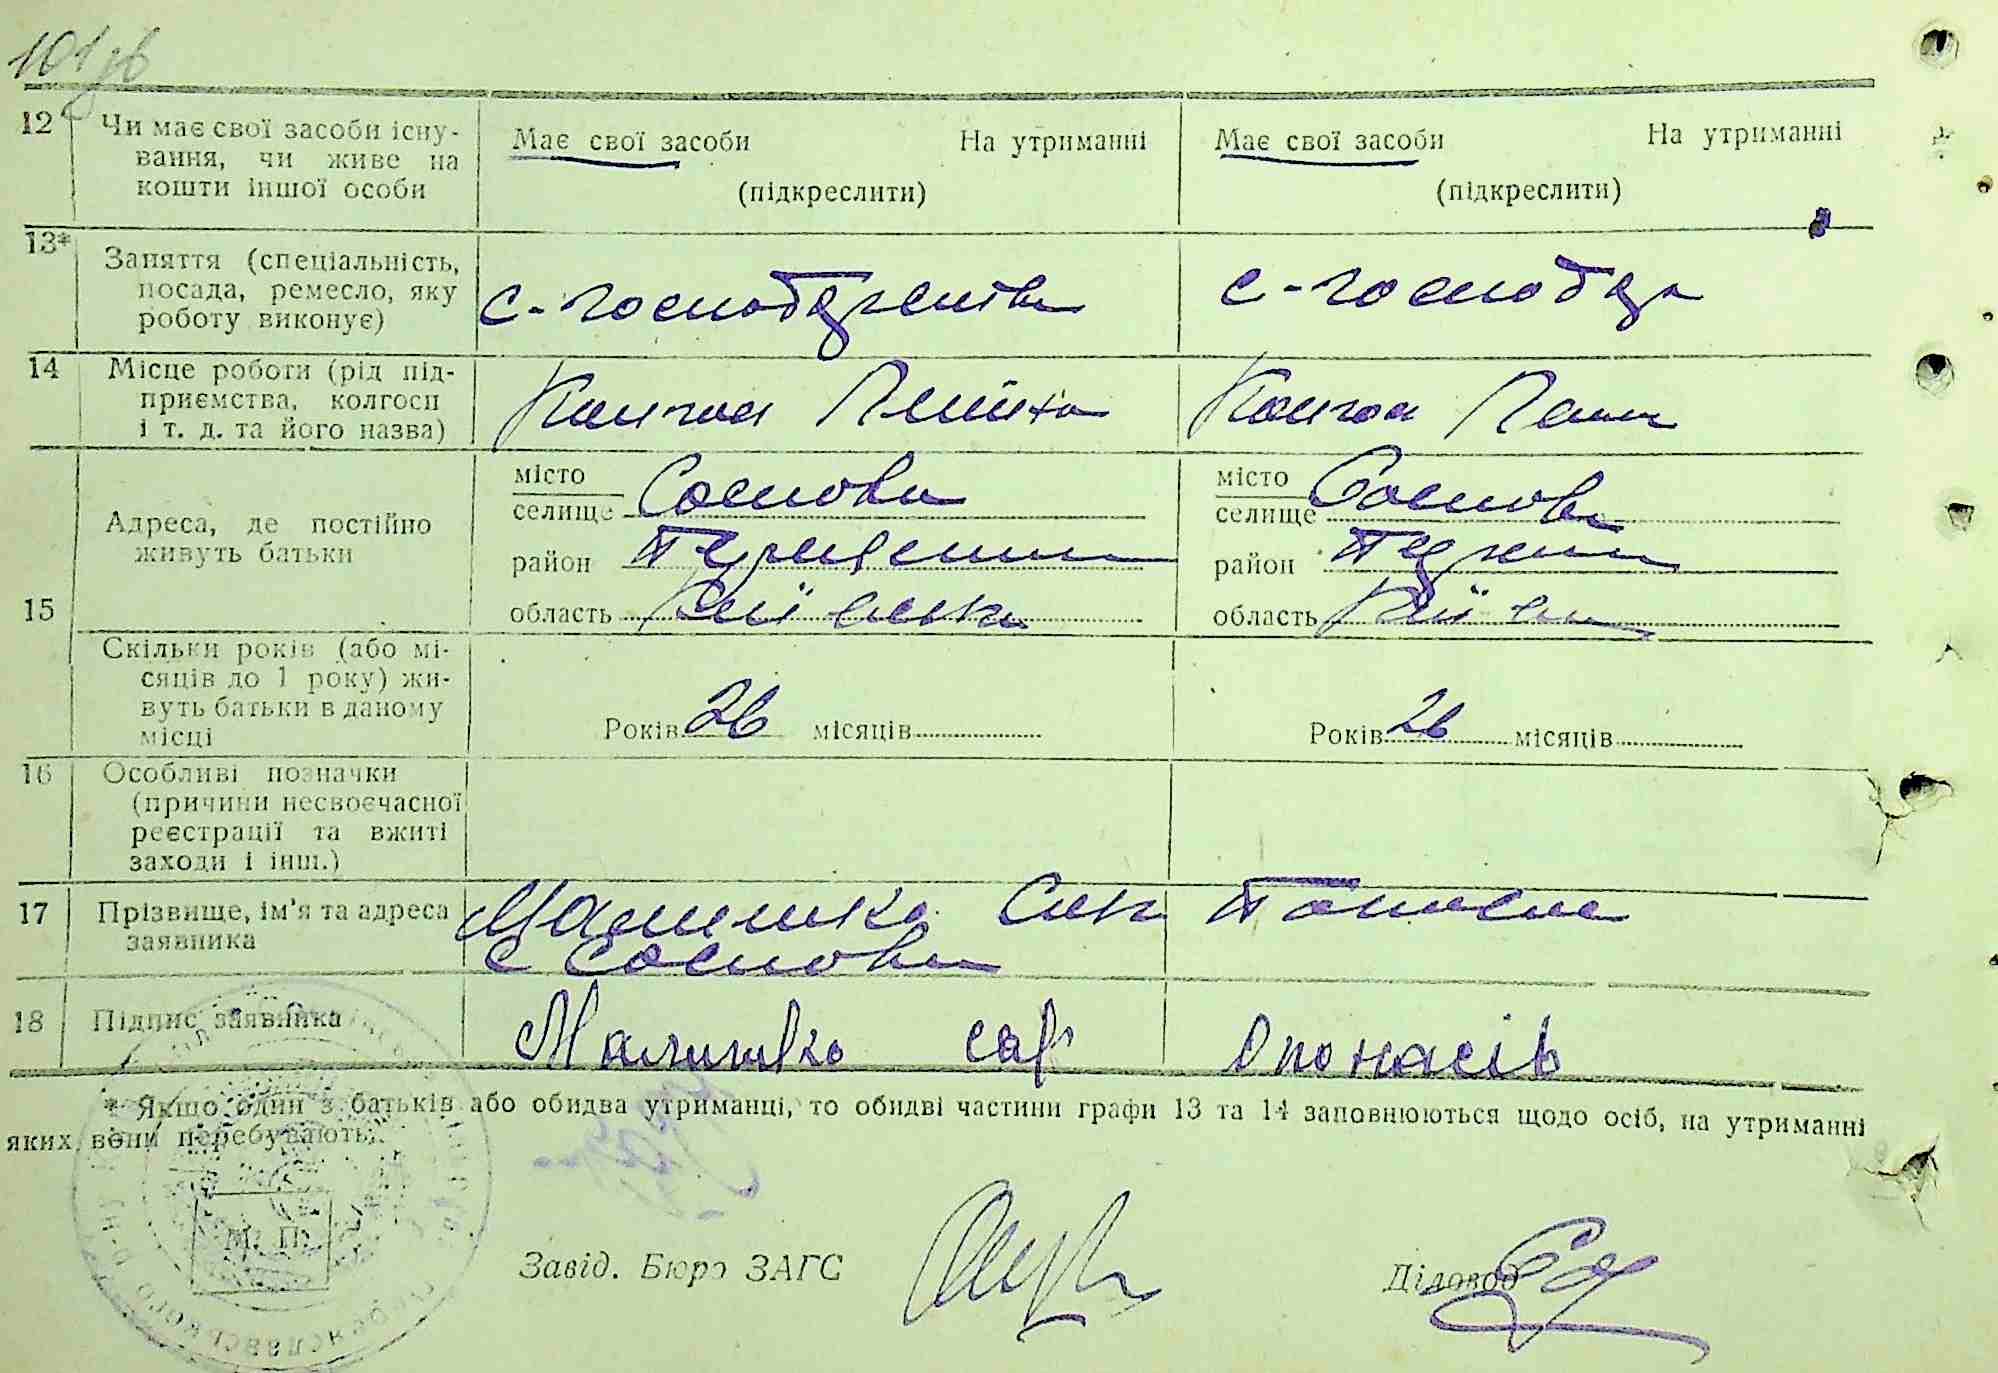 101зв
12 Чи має свої засоби існу-
вання, чи живе на
кошти іншої особи
Має свої засоби На утриманні
(підкреслити)
Має свої засоби На утриманні
(підкреслити)
13* Заняття (спеціальність,
посада, ремесло, яку
роботу виконує)
с-господарства
с-господар
14 Місце роботи (рід під-
приємства, колгосп
і т. д. та його назва)
Колгосп Леніна
Колгосп
Адреса, де постійно
живуть батьки
місто
селище Соснова
район
область Київська
місто
селище Соснова
район
область Київ
15
Скільки років (або мі-
сяців до 1 року) жи-
вуть батьки в даному
місці
Років 26 місяців
Років 26 місяців
16 Особливі позначки
(причини несвоєчасної
реєстрації та вжиті
заходи і інш.)
17 Прізвище, ім'я та адреса
заявника
Малишко
с Соснова
18 Підпис заявника
Малишко Опонасів
* Якщо один з батьків або обидва утриманці, то обидві частини графи 13 та 14 заповнюються щодо осіб, на утриманні
яких вони перебувають.
М. П.
Завід. Бюро ЗАГС
Діловод